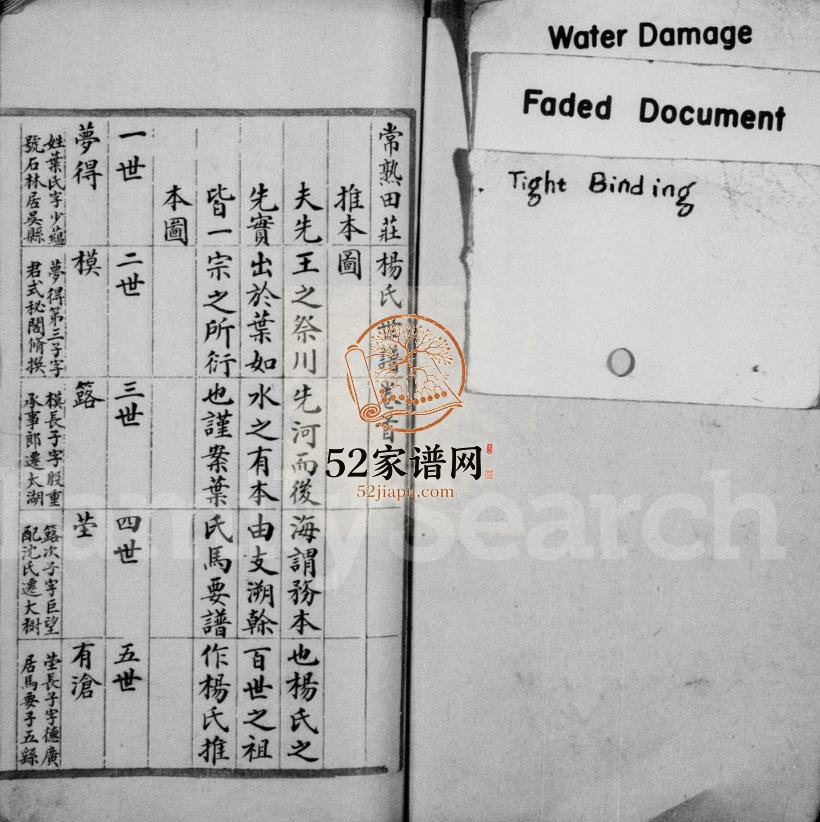 Water Damage
Faded Document
Tight Binding
常熟田莊楊氏世譜卷首
推本圖
夫先王之祭川先河而後海謂務本也楊氏之
先實出於葉如水之有本由支溯榦百世之祖
皆一宗之所衍也謹案葉氏馬要譜作楊氏推
本圖
一世 二世 三世 四世 五世
夢得 模 簬 瑩 有滄
姓葉氏字少蘊
號石林居吳縣
夢得第三子字
君式秘閣脩撰
模長子字殷重
承事郎遷太湖
簬次子字巨望
配沈氏遷大樹
瑩長子字德廣
居馬要子五縣
52家谱网
52jiapu.com
FamilySearch